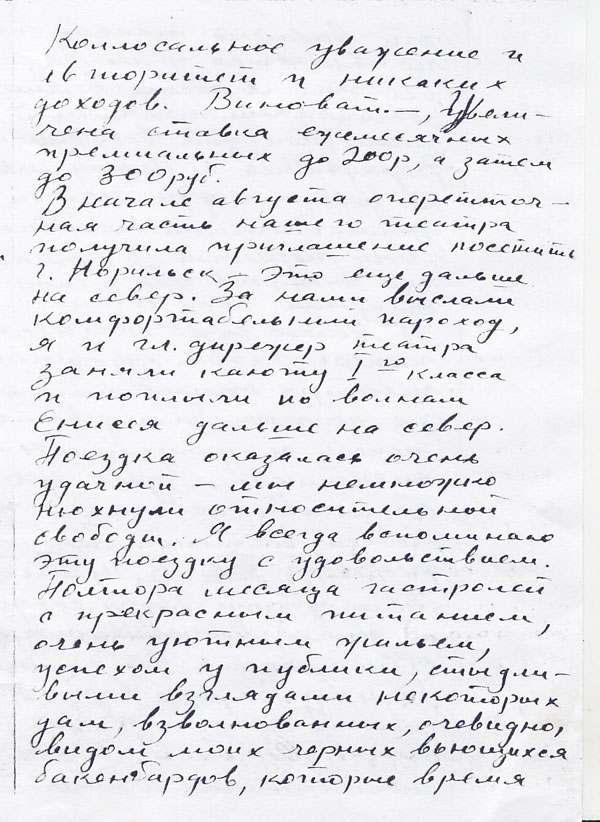 Коллосальное уважение и
авторитет и никаких
доходов. Виноват. —, Увели-
чена ставка ежемесячных
премиальных до 200р, а затем
до 300 руб.
В начале августа опереточ-
ная часть нашего театра
получила приглашение посетить
г. Норильск — это еще дальше
на север. За нами выслали
комфортабельный пароход,
я и гл. дирежер театра
заняли каюту I го класса
и поплыли по волнам
Енисея дальше на север.
Поездка оказалась очень
удачной — мы немножко
нюхнули относительной
свободы. Я всегда вспоминаю
эту поездку с удовольствием.
Полтора месяца гастролей
с прекрасным питанием,
очень уютным жильем,
успехом у публики, стыдли-
выми взглядами некоторых
дам, взволнованных, очевидно,
видом моих черных вьющихся
бакенбардов, которые время